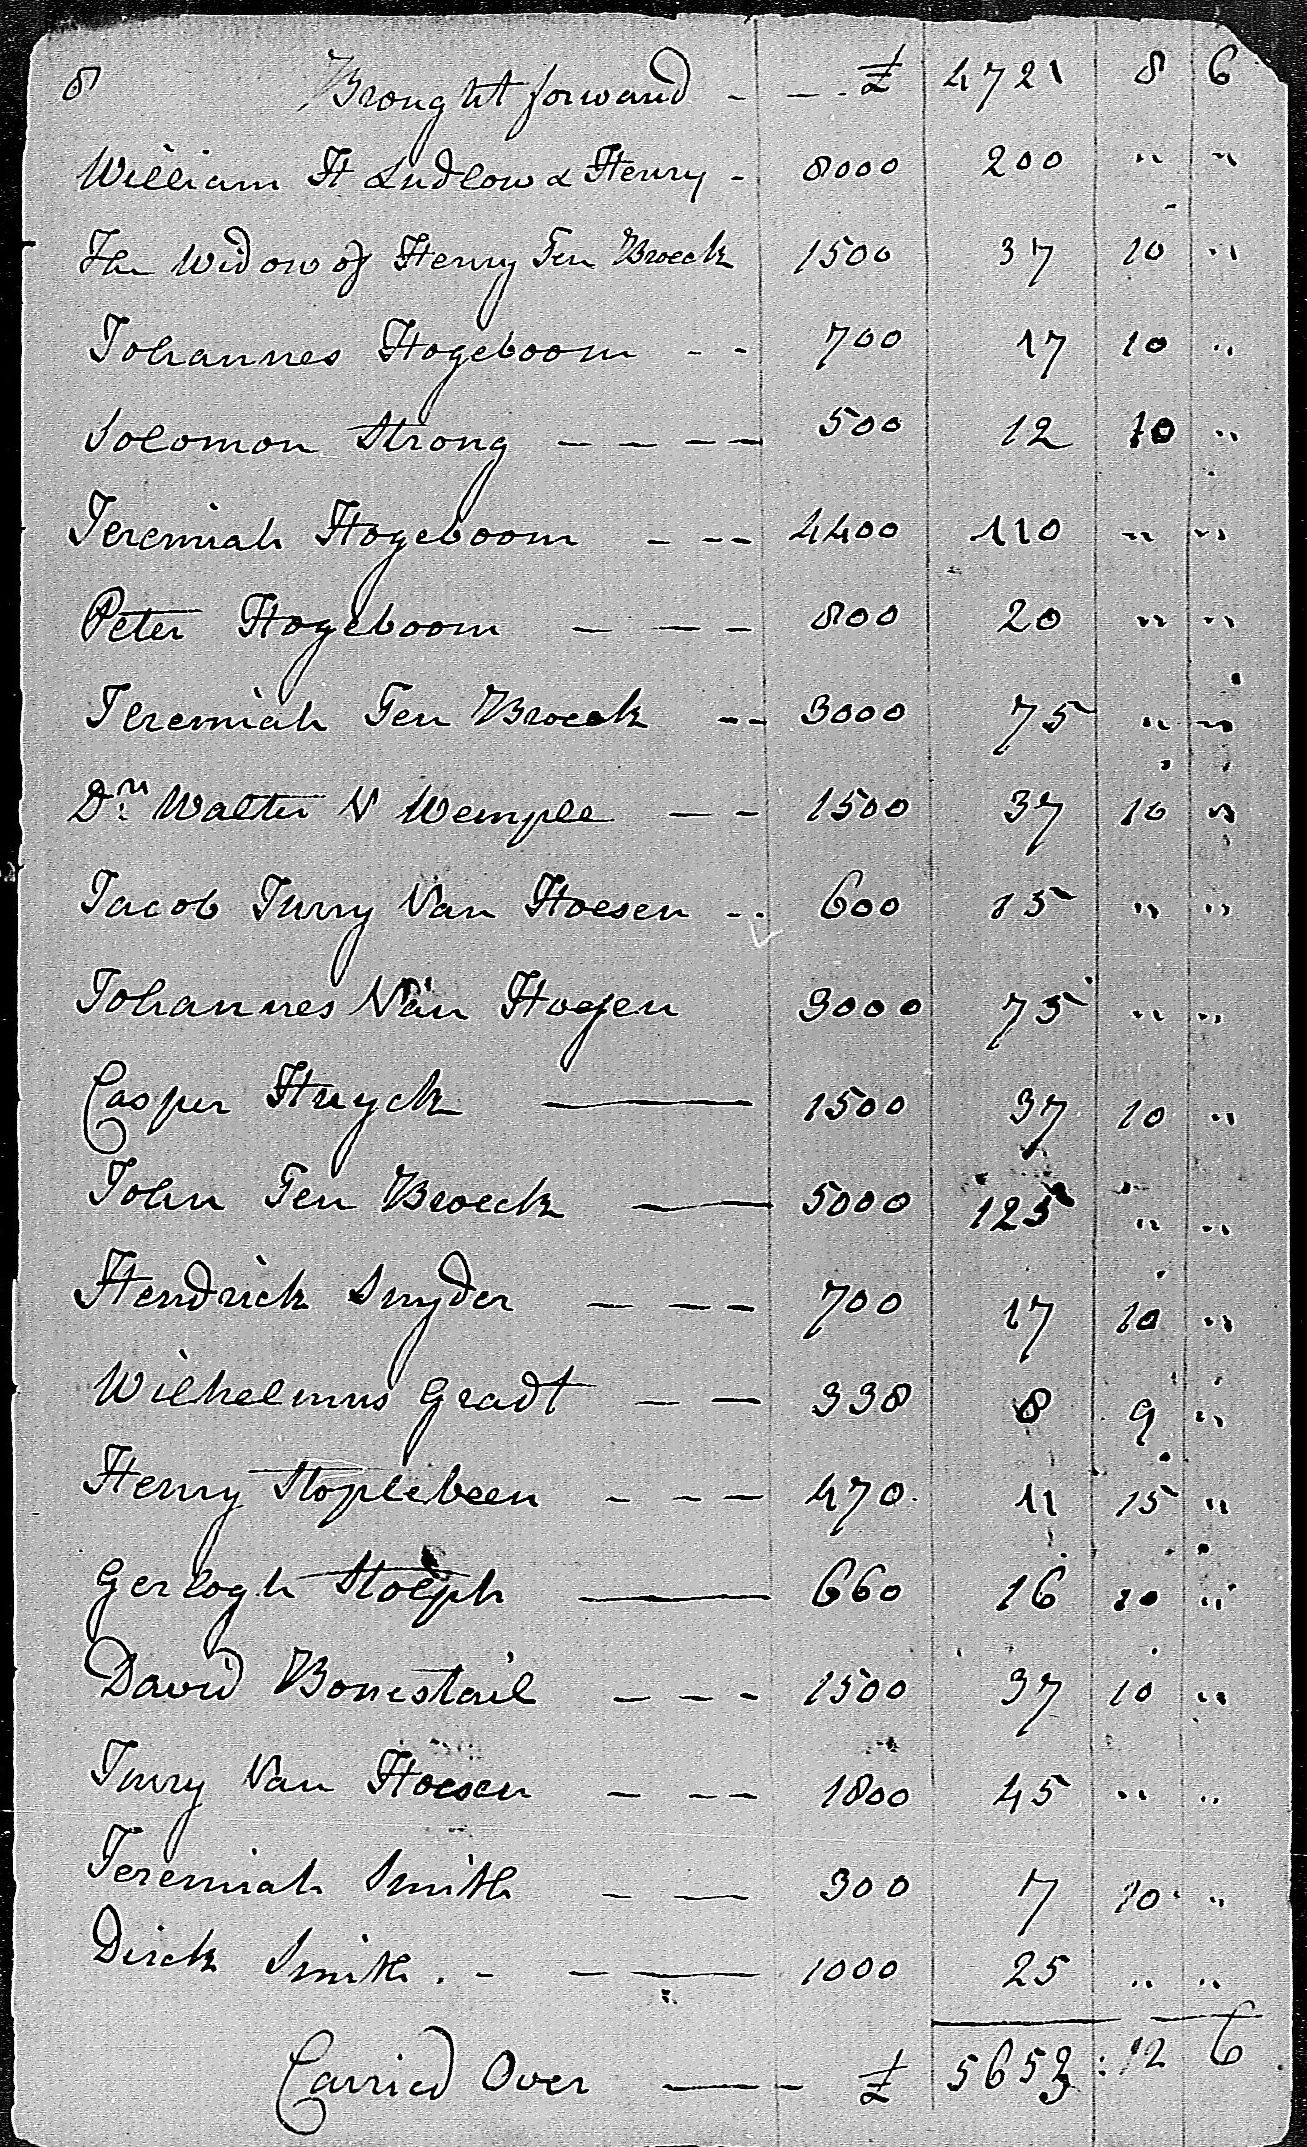 8 Brought forward - - - £ 4721 8 6
William H Ludlow & Henry - 8000 200 " "
The Widow of Henry Ten Broeck 1500 37 10 "
Johannes Hogeboom - - 700 17 10 "
Solomon Strong - - - - 500 12 10 "
Jeremiah Hogeboom - - - 4400 110 " "
Peter Hogeboom - - - 800 20 " "
Jeremiah Ten Broeck - - 3000 75 " "
Dr. Walter V Wemple - - 1500 37 10 "
Jacob Jurry Van Hoesen - - 600 15 " "
Johannes Van Hoesen 3000 75 " "
Casper Huyck — 1500 37 10 "
John Ten Broeck — 5000 125 " "
Hendrick Snyder - - - 700 17 10 "
Wilhelmus Gradt - - 338 8 9 "
Henry Stoplebeen - - - 470 11 15 "
Gerlogh Stolph — 660 16 10 "
David Bonestail - - - 1500 37 10 "
Jurry Van Hoesen - - - 1800 45 " "
Jeremiah Smith - - 300 7 10 "
Dirck Smith - - — 1000 25 " "
Carried Over — - £ 5653 : 12 6